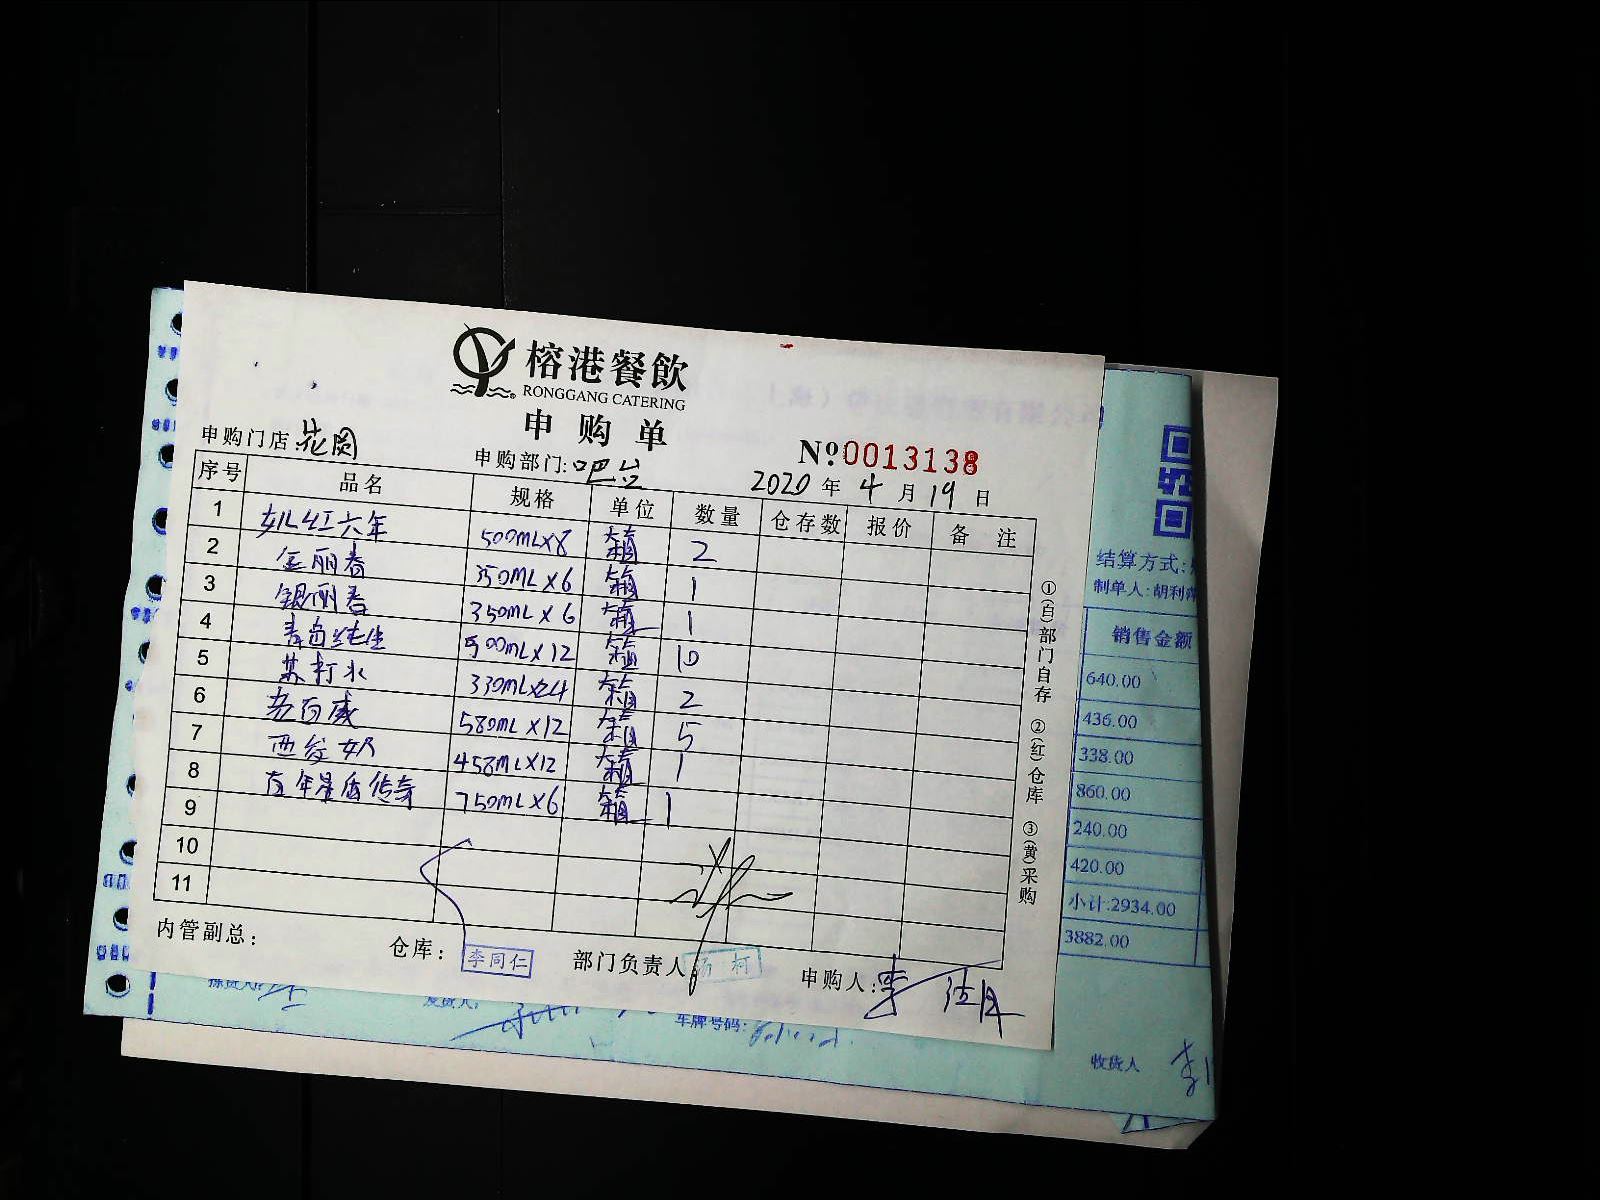 榕港餐飲
RONGGANG CATERING
申购单
申购门店:花园 申购部门:吧台 Nº0013138
2020年4月19日
序号 品名 规格 单位 数量 仓存数 报价 备注
1 女儿红六年 500ML×8 箱 2
2 金丽春 350ML×6 箱 1
3 银丽春 350ML×6 箱 1
4 青岛纯生 500ML×12 箱 10
5 苏打水 330ML×24 箱 2
6 百威 580ML×12 箱 5
7 458ML×12 箱 1
8 百年 传奇 750ML×6 箱 1
9
10
11
内管副总: 仓库: 李同仁 部门负责人 柯 申购人:李
①(白)部门自存 ②(红)仓库 ③(黄)采购
结算方式:
制单人:胡利
销售金额
640.00
436.00
338.00
860.00
240.00
420.00
小计:2934.00
3882.00
发货人:
车牌号码:
收货人 李